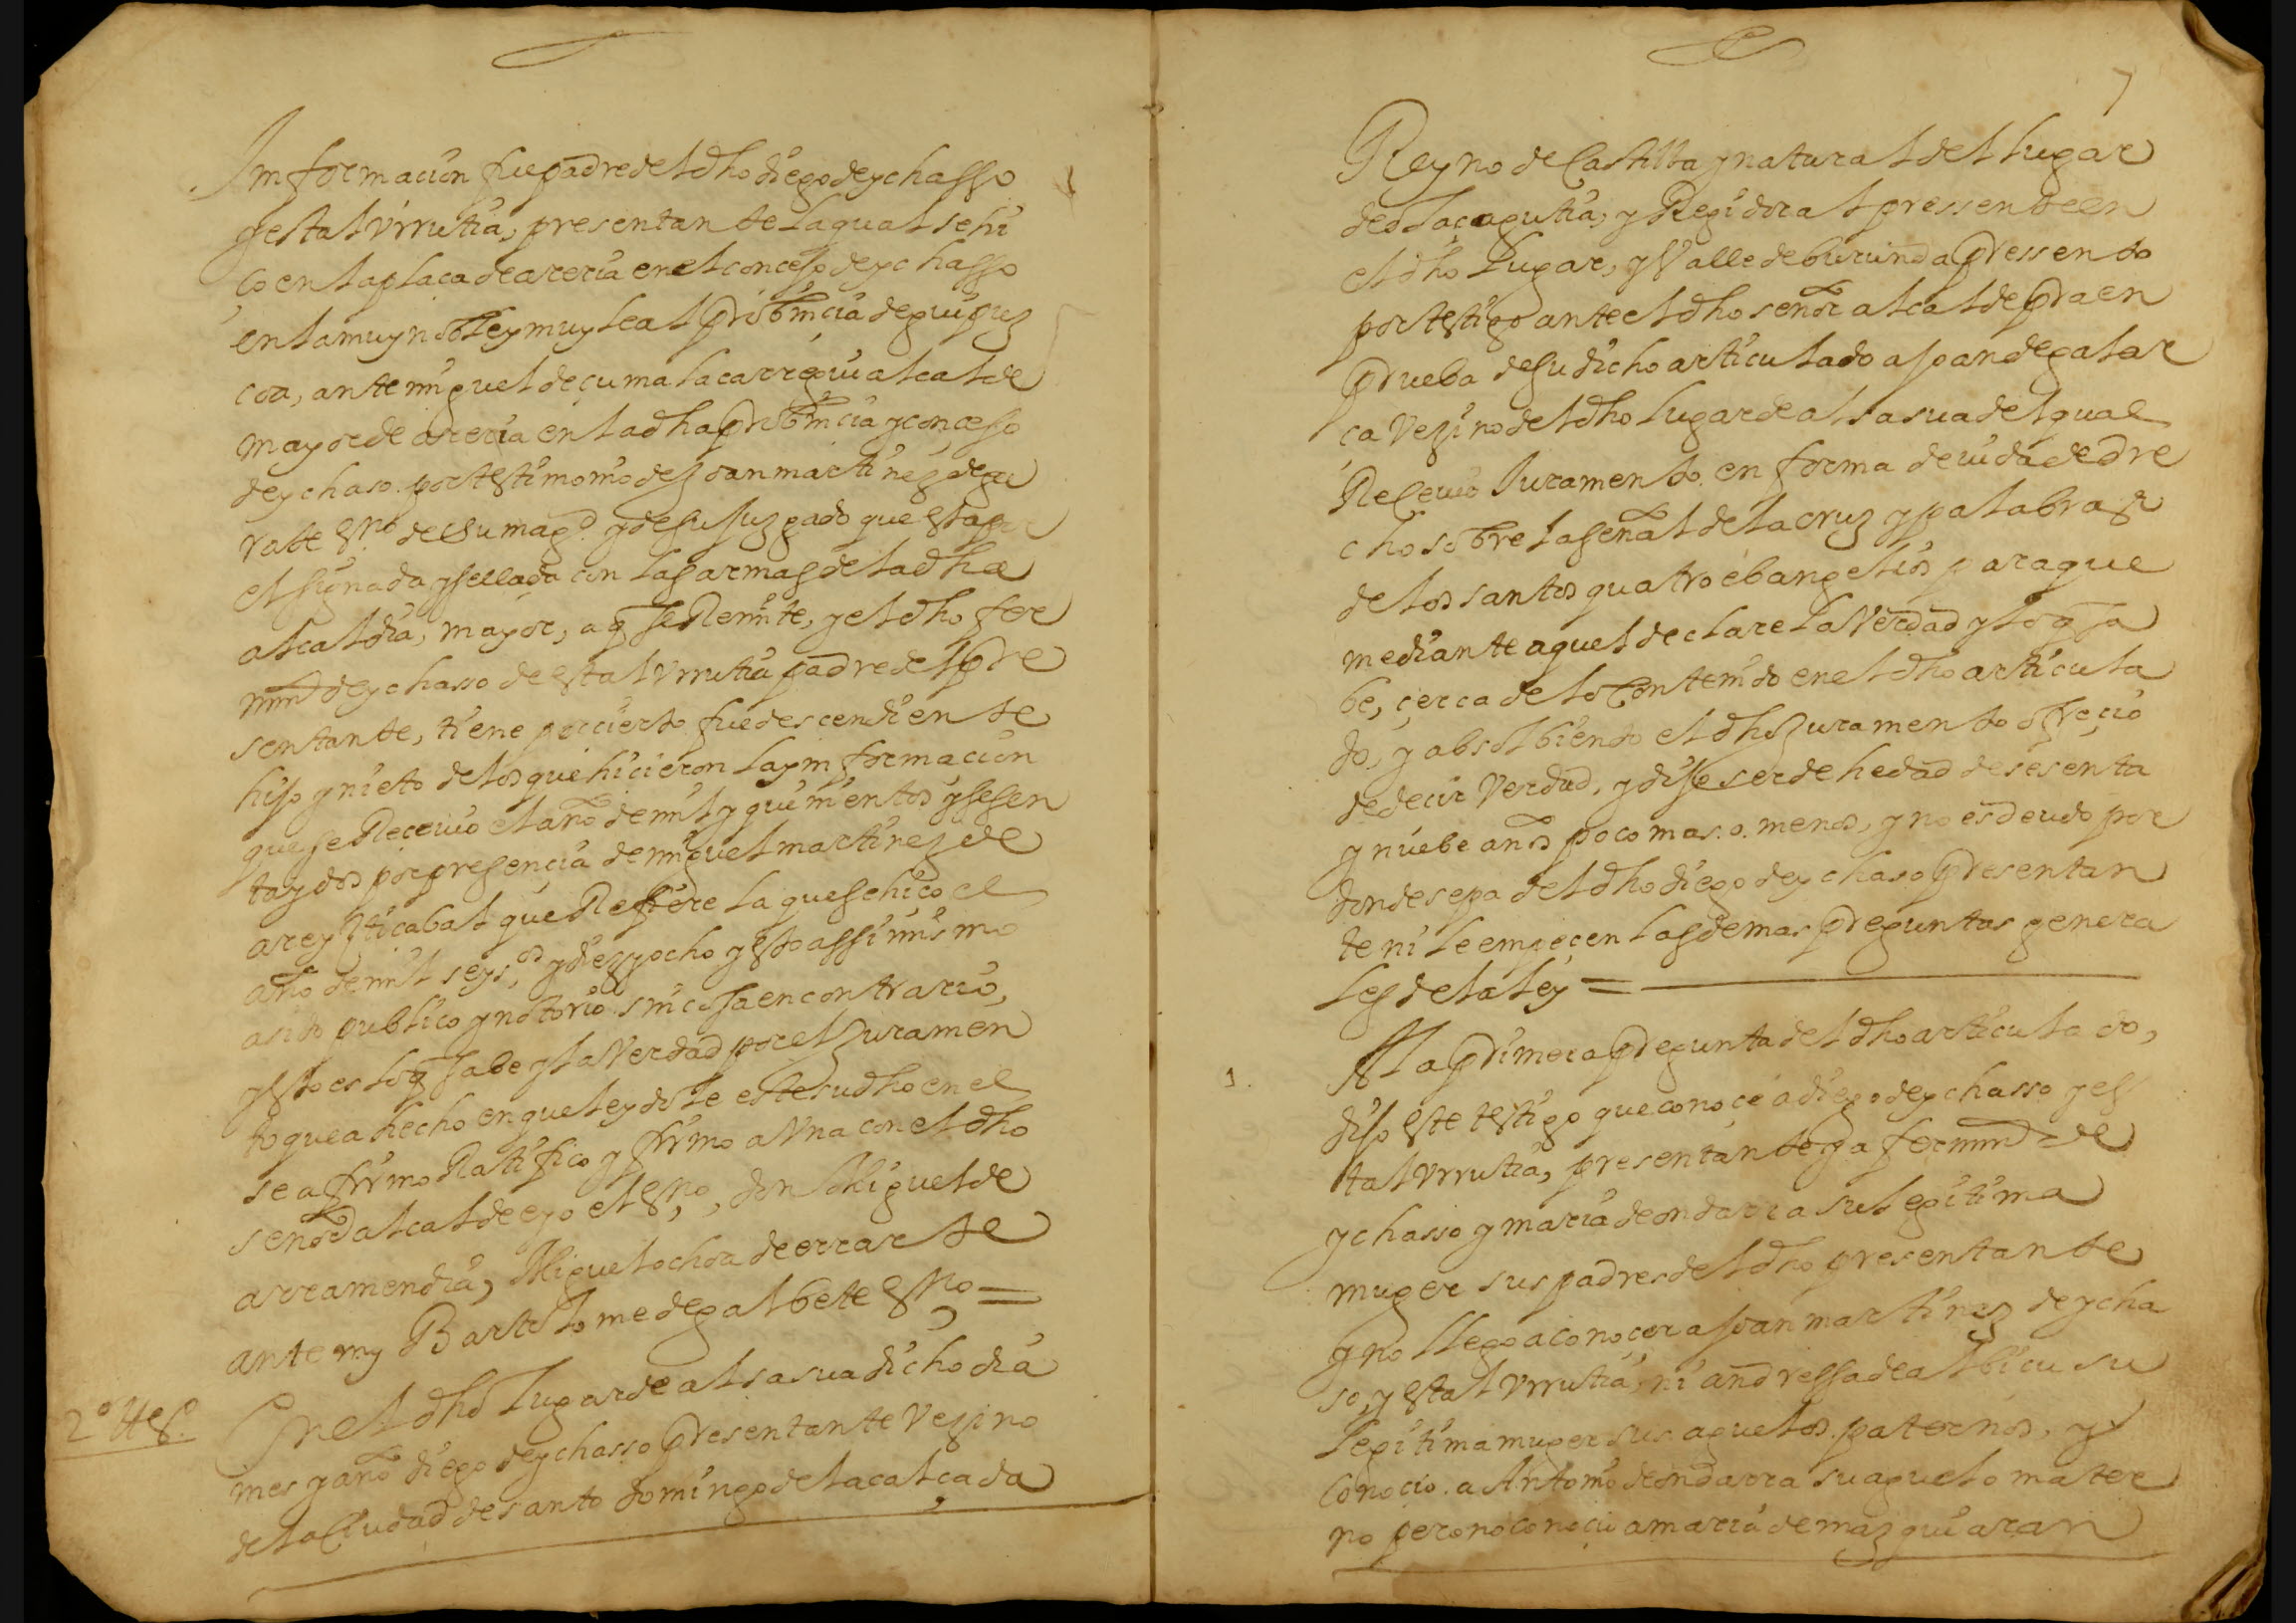 Imformacion fue padre del dho diego de ychasso
y estal Vrrutia, presentante la qual se hi
ço en la plaça de areria en el concejo de ychasso
en la muy noble y muy leal probinçia de guipuz
coa, ante miguel de çumalacarregui alcalde
mayor de areria en la dha probinçia y concejo
de ychaso. por testimonio de Joan martinez de gu
rate sno de su magd. y de su Juzgado que esta por
el signada y sellada con las armas de la dha
alcaldia, mayor, a q se Remite, y el dho fer
mind de ychasso de estal Vrrutia padre del pre
sentante, tiene por cierto fue descendiente
hijo y nieto de los que hicieron la ymformacion
que se Recevio el año de mil y quinientos y sesen
ta y dos por presencia de miguel martinez de
areyzticabal que Refiere la que se hiço el
año de mil seysos y diez y ocho y esto assi mismo
a sido publico y notorio sin cosa en contrario,
y esto es lo q sabe y la Verdad por el Juramen
to que a hecho en que leydole este su dho en el
se afirmo Ratifico y firmo a Vna con el dho
señor alcalde e yo el sno, don Miguel de
arramendia, Miguel ochoa de errarte
ante my Bartolome de galbete sno =
2º tesº. En el dho lugar de alsasua dicho dia
mes y año diego de ychasso presentante Vezino
de la Ciudad de santo domingo de la calçada
7
Reyno de Castilla y natural del lugar
de olaçagutia, y Regidor al pressente en
el dho lugar, y Valle de burunda pressento
por testigo ante el dho señor alcalde pra en
prueba de su dicho articulado a joan de galar
ça Vezino del dho lugar de alsasua del qual
Recevio Juramento en forma devida de dre
cho sobre la señal de la cruz y palabras
de los santos quatro ebangelios para que
mediante aquel declare la Verdad y lo q sa
be, çerca de lo Contenido en el dho articula
do, y absolbiendo el dho Juramento ofreçio
de decir Verdad, y dijo ser de hedad de sesenta
y nuebe años poco mas. o. menos, y no es deudo por
donde sepa del dho diego de ychaso presentan
te ni le empeçen las demas preguntas genera
les de la ley =
1. A la primera pregunta del dho articulado,
dijo este testigo que conoçe a diego de ychasso y es
tal Vrrutia, presentante y a fermind de
ychasso y maria de ondarra su legitima
muger sus padres del dho presentante
y no llego a conoçer a joan martinez de ycha
so, y estal Vrrutia, ni andressa de albicu su
legitima muger sus aguelos paternos, y
conocio. a Antonio de ondarra su aguelo mater
no pero no conocio a maria de mazquiaran